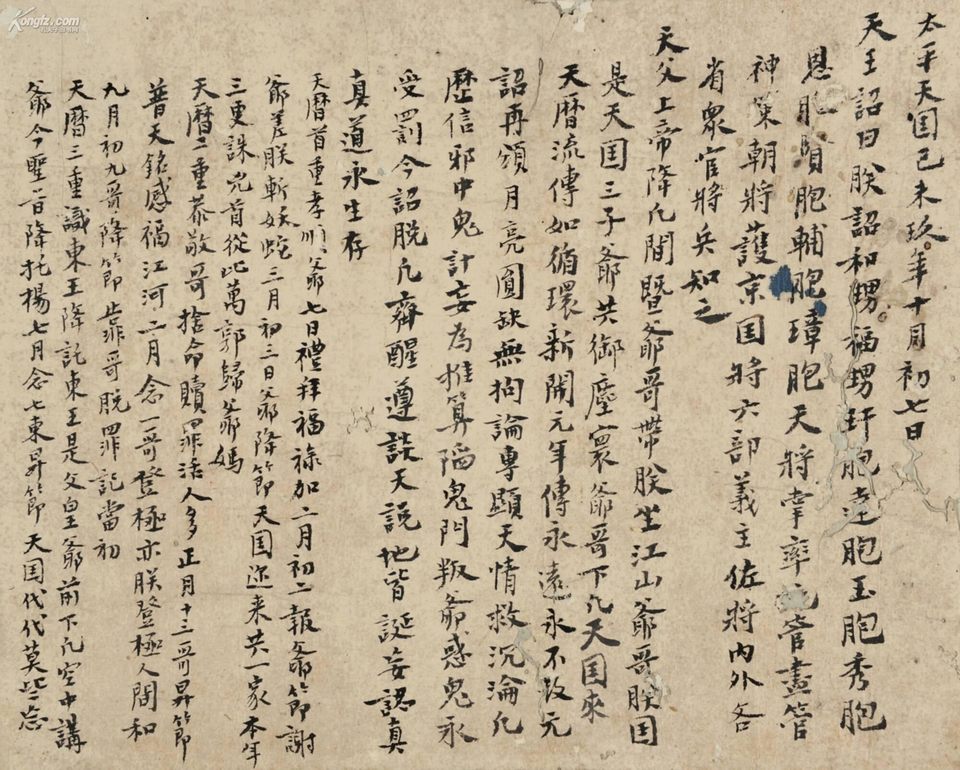 太平天囯己未玖年十月初七日
天王詔曰朕詔和甥福甥玕胞達胞玉胞秀胞
恩胞賢胞輔胞璋胞天將掌率統管盡管
神策朝將護京囯將六部義主佐將內外各
省眾官將兵知之
天父上帝降凡間暨爺哥帶朕坐江山爺哥朕囯
是天囯三子爺共御塵寰爺哥下凡天囯來
天曆流傳如循環新開元年傳永遠永不改元
詔再頒月亮圓缺無拘論專顯天情救沉淪凡
歷信邪中鬼計妄為推算陷鬼門叛爺惑鬼永
受罰今詔脫凡齊醒遵談天說地皆誕妄認真
真道永生存
天曆首重孝順爺七日禮拜福祿加二月初二報爺節謝
爺差朕斬妖蛇三月初三日爺降節天囯迩來共一家本年
三更誅兇首從此萬郭歸爺媽
天曆二重恭敬哥捨命贖罪活人多正月十三哥昇節
普天銘感福江河二月念一哥登極亦朕登極人間和
九月初九哥降節靠哥脫罪記當初
天曆三重識東王降託東王是父皇爺前下凡空中講
爺今聖旨降托楊七月念七東昇節天囯代代莫些忘
Kongfz.com